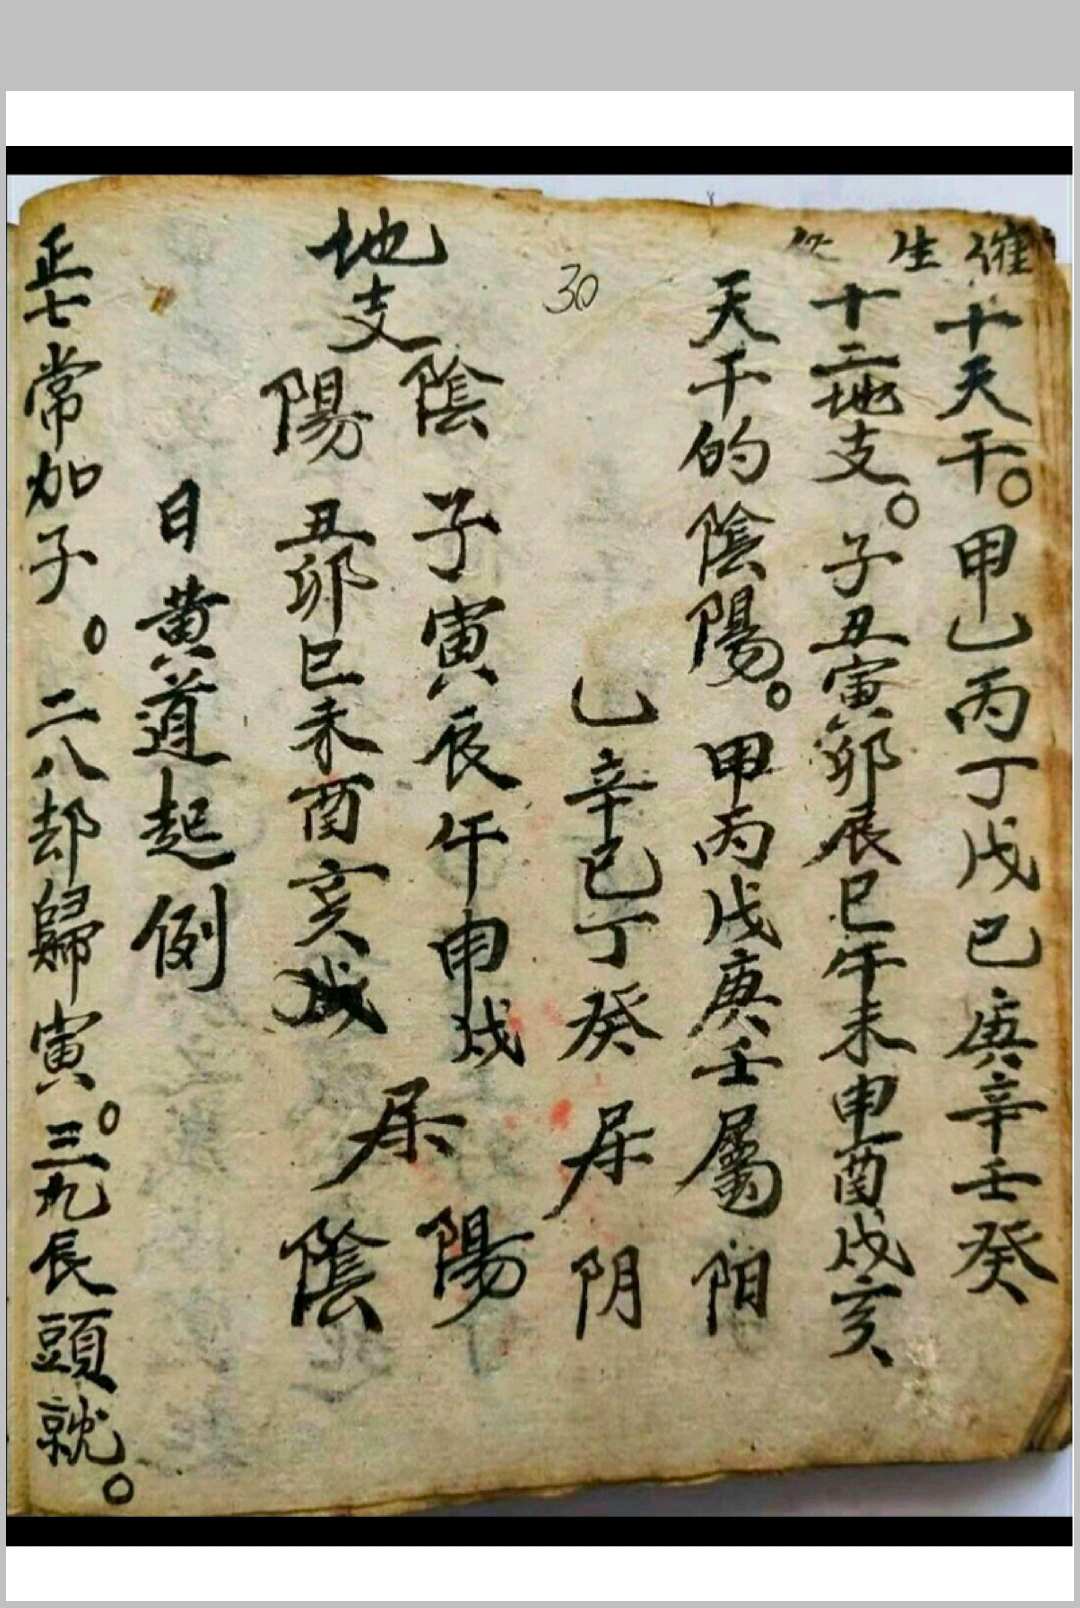 催生
十天干。甲乙丙丁戊己庚辛壬癸
十二地支。子丑寅卯辰巳午未申酉戌亥
天干的陰陽。甲丙戊庚壬屬阳
30
乙辛己丁癸屌阴
地支
陰子寅辰午申戌屌陽
陽丑卯巳未酉亥陰
日黄道起例
正七常加子。二八却歸寅。三九辰頭就。